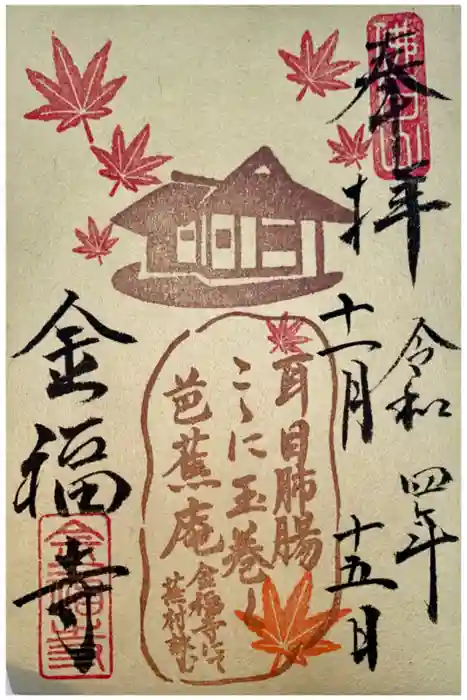 奉拝
令和四年
十一月十五日
耳目肺腸
こゝに玉巻く
芭蕉庵
金福寺にて
蕪村
金福寺
金福寺